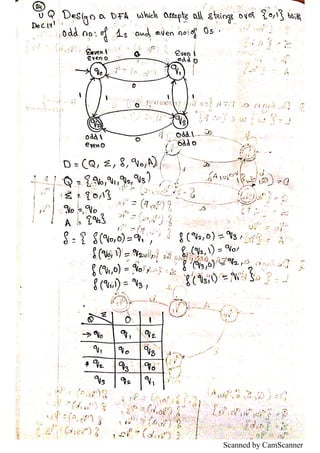 U Q Design a DFA which accepts all strings over {0,1} with
odd no: of 1s and even no: of 0s.
even 1
even 0
even 1
odd 0
0
q0
q1
0
1
1
1
1
0
q2
q3
0
odd 1
even 0
odd 1
odd 0
D = (Q, Σ, δ, q0, A)
Q = {q0, q1, q2, q3}
Σ = {0,1}
q0 = q0
A = {q2}
δ = { δ(q0,0) = q1, δ(q2,0) = q3,
δ(q0,1) = q2, δ(q2,1) = q0,
δ(q1,0) = q0, δ(q3,0) = q2,
δ(q1,1) = q3, δ(q3,1) = q1 }
Q Σ 0 1
→q0 q1 q2
q1 q0 q3
q2 q3 q0
q3 q2 q1
Scanned by CamScanner